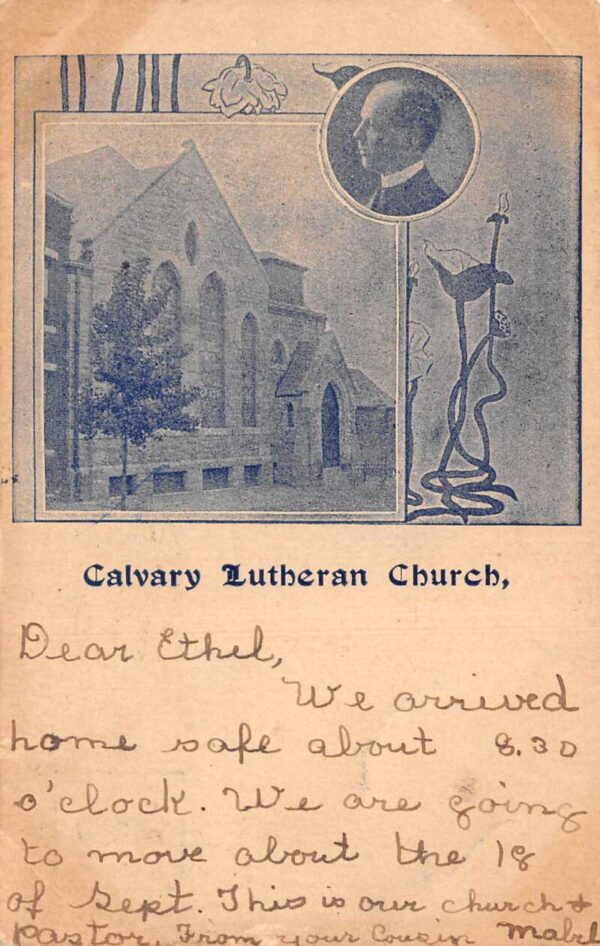 Calvary Lutheran Church,
Dear Ethel,
We arrived
home safe about 8.30
o'clock. We are going
to move about the 18
of Sept. This is our church &
Pastor. From your Cousin Mabel